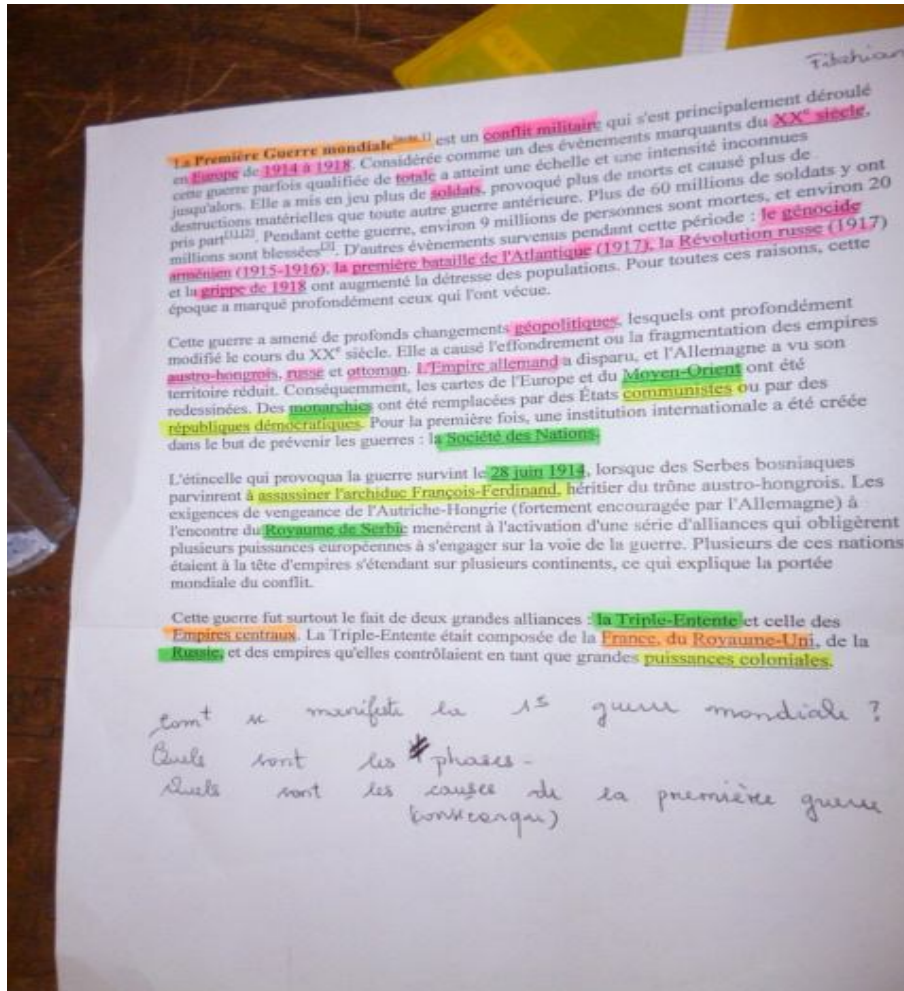 La Première Guerre mondiale[note 1] est un conflit militaire qui s'est principalement déroulé
en Europe de 1914 à 1918. Considérée comme un des évènements marquants du XXe siècle,
cette guerre parfois qualifiée de totale a atteint une échelle et une intensité inconnues
jusqu'alors. Elle a mis en jeu plus de soldats, provoqué plus de morts et causé plus de
destructions matérielles que toute autre guerre antérieure. Plus de 60 millions de soldats y ont
pris part[1],[2]. Pendant cette guerre, environ 9 millions de personnes sont mortes, et environ 20
millions sont blessées[3]. D'autres évènements survenus pendant cette période : le génocide
arménien (1915-1916), la première bataille de l'Atlantique (1917), la Révolution russe (1917)
et la grippe de 1918 ont augmenté la détresse des populations. Pour toutes ces raisons, cette
époque a marqué profondément ceux qui l'ont vécue.
Cette guerre a amené de profonds changements géopolitiques, lesquels ont profondément
modifié le cours du XXe siècle. Elle a causé l'effondrement ou la fragmentation des empires
austro-hongrois, russe et ottoman. L'Empire allemand a disparu, et l'Allemagne a vu son
territoire réduit. Conséquemment, les cartes de l'Europe et du Moyen-Orient ont été
redessinées. Des monarchies ont été remplacées par des États communistes ou par des
républiques démocratiques. Pour la première fois, une institution internationale a été créée
dans le but de prévenir les guerres : la Société des Nations.
L'étincelle qui provoqua la guerre survint le 28 juin 1914, lorsque des Serbes bosniaques
parvinrent à assassiner l'archiduc François-Ferdinand, héritier du trône austro-hongrois. Les
exigences de vengeance de l'Autriche-Hongrie (fortement encouragée par l'Allemagne) à
l'encontre du Royaume de Serbie menèrent à l'activation d'une série d'alliances qui obligèrent
plusieurs puissances européennes à s'engager sur la voie de la guerre. Plusieurs de ces nations
étaient à la tête d'empires s'étendant sur plusieurs continents, ce qui explique la portée
mondiale du conflit.
Cette guerre fut surtout le fait de deux grandes alliances : la Triple-Entente et celle des
Empires centraux. La Triple-Entente était composée de la France, du Royaume-Uni, de la
Russie, et des empires qu'elles contrôlaient en tant que grandes puissances coloniales.
comt se manifeste la guerre mondiale ?
Quels sont les phases -
Quels sont les causes de la première guerre